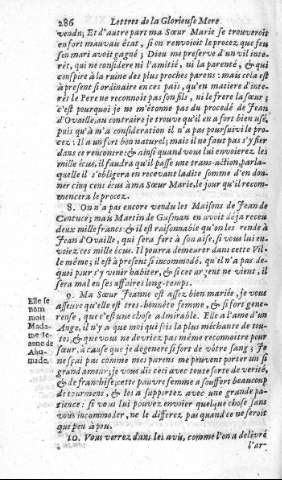 286 Lettres de la Glorieuse Mere
vendu; Et d'autre part ma Sœur Marie se trouveroit
en fort mauvais état, si on renvoioit le procez que feu
son mari avoit gagné; Dieu me preserve d'un vil inte-
rêt, qui ne considere ni l'amitié, ni la parenté, & qui
conspire à la ruine des plus proches parens: mais cela est
à present si ordinaire en ces païs, qu'en matiere d'inte-
rêt le Pere ne reconnoît pas son fils, ni le frere la sœur;
c'est pourquoi je ne m'étonne pas du procedé de Jean
d'Ovaille, au contraire je trouve qu'il en a fort bien usé,
puis qu'à ma consideration il n'a pas poursuivi le pro-
cez: Il a un fort bon naturel; mais il ne faut pas s'y fier
dans ce rencontre; & ainsi quand vous lui envoierez les
mille écus, il faudra qu'il passe une trans-action, par la-
quelle il s'obligera en recevant ladite somme d'en don-
ner cinq cens écus à ma Sœur Marie, le jour qu'il recom-
mencera le procez.
8. On n'a pas encore vendu les Maisons de Jean de
Centuce; mais Martin de Gusman en avoit déja receu
deux mille francs & il est raisonnable qu'on les rende à
Jean d'Ovaille, qui sera fort à son aise, si vous lui en-
voiez ces mille écus. Il pourra demeurer dans cette Vil-
le même; il est à present si incommodé, qu'il n'a pas de-
quoi pour s'y venir habiter, & si cet argent ne vient, il
sera mal en ses affaires long-temps.
9. Ma Sœur Jeanne est assez bien mariée, je vous
assure qu'elle est tres-honnête femme, & si fort gene-
reuse, que c'est une chose admirable. Elle a l'ame d'un
Ange, il n'y a que moi qui sois la plus méchante de tou-
tes, & que vous ne devriez pas même reconnoître pour
sœur, à cause que je degenere si fort de vôtre sang; Je
ne sçai pas comme mes parens me peuvent porter un si
grand amour; je vous dis ceci avec toute sorte de verité,
& de franchise; cette pauvre femme a souffert beaucoup
de tourmens, & les a supportez avec une grande pa-
tience: si vous lui pouvez envoier quelque chose sans
vous incommoder, ne le differez pas quand ce ne seroit
que peu à peu.
10. Vous verrez dans les avis, comme l'on a delivré
l'ar-
Elle se
nom
moit
Mada-
me Je-
anne de
Ahu-
made.